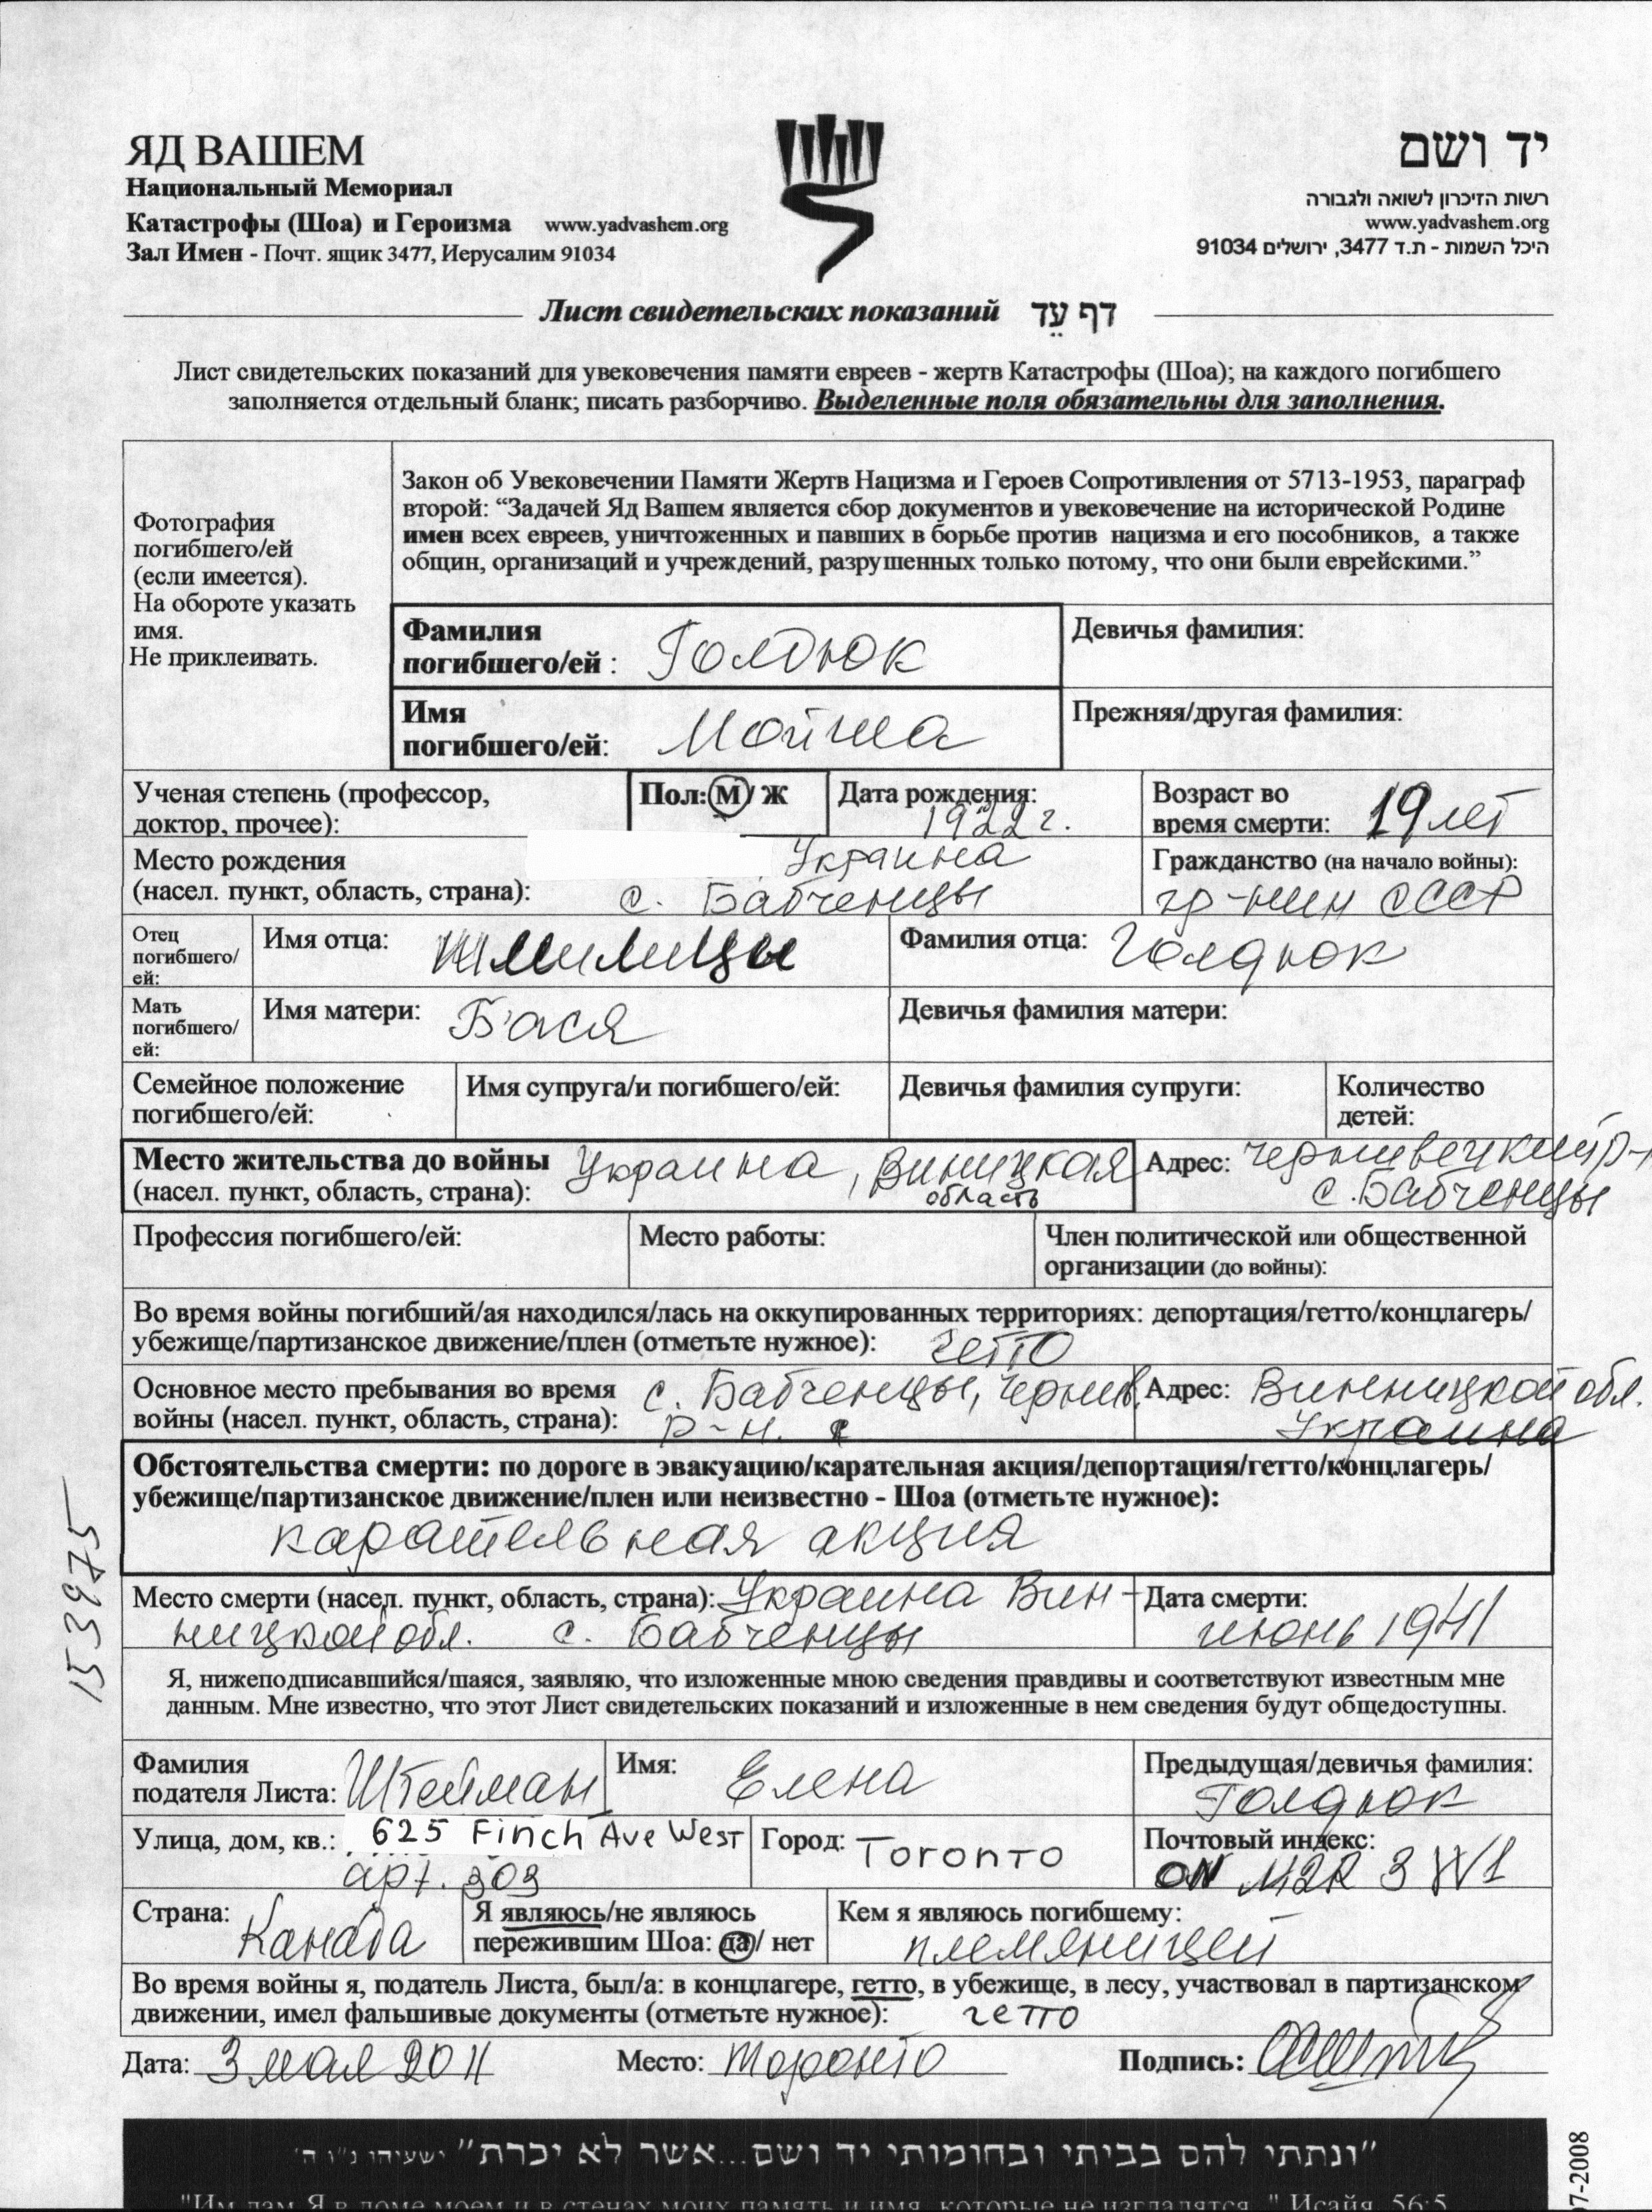 ЯД ВАШЕМ
Национальный Мемориал
Катастрофы (Шоа) и Героизма www.yadvashem.org
Зал Имен - Почт. ящик 3477, Иерусалим 91034
יד ושם
רשות הזיכרון לשואה ולגבורה
www.yadvashem.org
היכל השמות - ת.ד 3477, ירושלים 91034
Лист свидетельских показаний דף עֵד
Лист свидетельских показаний для увековечения памяти евреев - жертв Катастрофы (Шоа); на каждого погибшего
заполняется отдельный бланк; писать разборчиво. Выделенные поля обязательны для заполнения.
Фотография
погибшего/ей
(если имеется).
На обороте указать
имя.
Не приклеивать.
Закон об Увековечении Памяти Жертв Нацизма и Героев Сопротивления от 5713-1953, параграф
второй: “Задачей Яд Вашем является сбор документов и увековечение на исторической Родине
имен всех евреев, уничтоженных и павших в борьбе против нацизма и его пособников, а также
общин, организаций и учреждений, разрушенных только потому, что они были еврейскими.”
Фамилия
погибшего/ей : Голдюк
Девичья фамилия:
Имя
погибшего/ей: Мойша
Прежняя/другая фамилия:
Ученая степень (профессор,
доктор, прочее):
Пол: М / Ж
Дата рождения:
1922 г.
Возраст во
время смерти: 19 лет
Место рождения Украина
(насел. пункт, область, страна): с. Бабченцы
Гражданство (на начало войны):
гр-нин СССР
Отец
погибшего/
ей:
Имя отца:
Фамилия отца: Голдюк
Мать
погибшего/
ей:
Имя матери: Бася
Девичья фамилия матери:
Семейное положение
погибшего/ей:
Имя супруга/и погибшего/ей:
Девичья фамилия супруги:
Количество
детей:
Место жительства до войны Украина, Виницкая
(насел. пункт, область, страна): область
Адрес: Чернивецкий р-н
с. Бабченцы
Профессия погибшего/ей:
Место работы:
Член политической или общественной
организации (до войны):
Во время войны погибший/ая находился/лась на оккупированных территориях: депортация/гетто/концлагерь/
убежище/партизанское движение/плен (отметьте нужное): гетто
Основное место пребывания во время с. Бабченцы, Чернив.
войны (насел. пункт, область, страна): р-н.
Адрес: Винницкой обл.
Украина
Обстоятельства смерти: по дороге в эвакуацию/карательная акция/депортация/гетто/концлагерь/
убежище/партизанское движение/плен или неизвестно - Шоа (отметьте нужное):
карательная акция
Место смерти (насел. пункт, область, страна): Украина Вин-
ницкой обл. с. Бабченцы
Дата смерти:
июнь 1941
Я, нижеподписавшийся/шаяся, заявляю, что изложенные мною сведения правдивы и соответствуют известным мне
данным. Мне известно, что этот Лист свидетельских показаний и изложенные в нем сведения будут общедоступны.
Фамилия
подателя Листа: Штейман
Имя: Елена
Предыдущая/девичья фамилия:
Голдюк
Улица, дом, кв.: 625 Finch Ave West
apt. 309
Город: Toronto
Почтовый индекс:
ON M2R 3W1
Страна: Канада
Я являюсь/не являюсь
пережившим Шоа: да / нет
Кем я являюсь погибшему:
племяницей
Во время войны я, податель Листа, был/а: в концлагере, гетто, в убежище, в лесу, участвовал в партизанском
движении, имел фальшивые документы (отметьте нужное): гетто
Дата: 3 мая 2011 Место: Торонто Подпись:
"ונתתי להם בביתי ובחומותי יד ושם...אשר לא יכרת" ישעיהו נ"ו ה'
"Им дам Я в доме моем и в стенах моих память и имя, которые не изгладятся." Исайя, 56:5
153975
07-2008